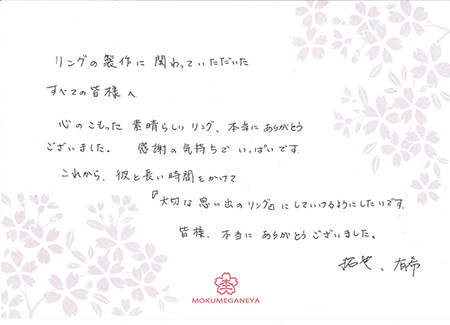 リングの製作に 関わっていただいた
すべての皆様へ
心のこもった 素晴らしいリング、本当に ありがとう
ございました。 感謝の気持ちで いっぱいです
これから、彼と長い時間をかけて
『大切な思い出のリング』にしていけるようにしたいです。
皆様、本当に ありがとうございました。
拓也、有希
MOKUMEGANEYA